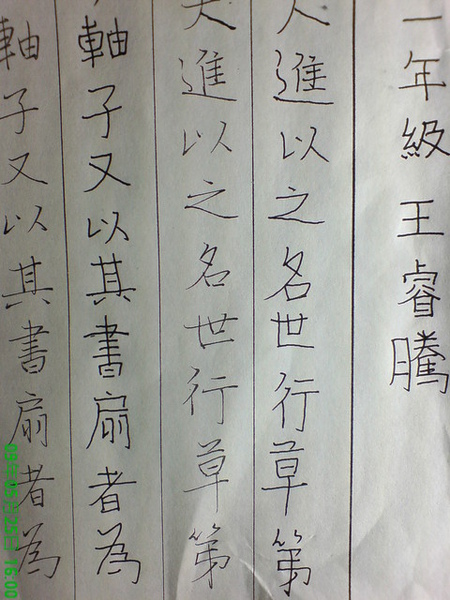 一年級王睿騰
進以之名世行草第
進以之名世行草第
軸子又以其書扇者為
軸子又以其書扇者為
15:00